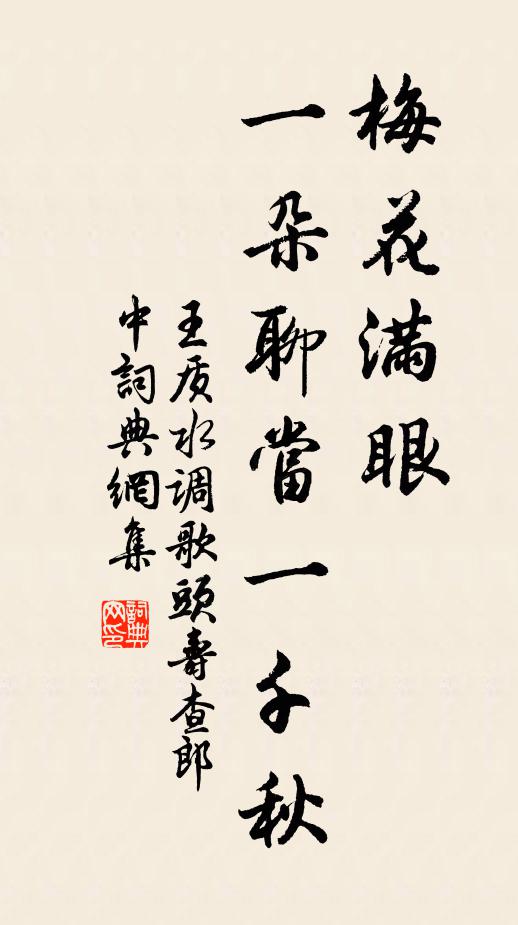 梅花满眼
一朵聊當一千秋
王质水调歌頭壽查郎
中詞典網集
詞典网印